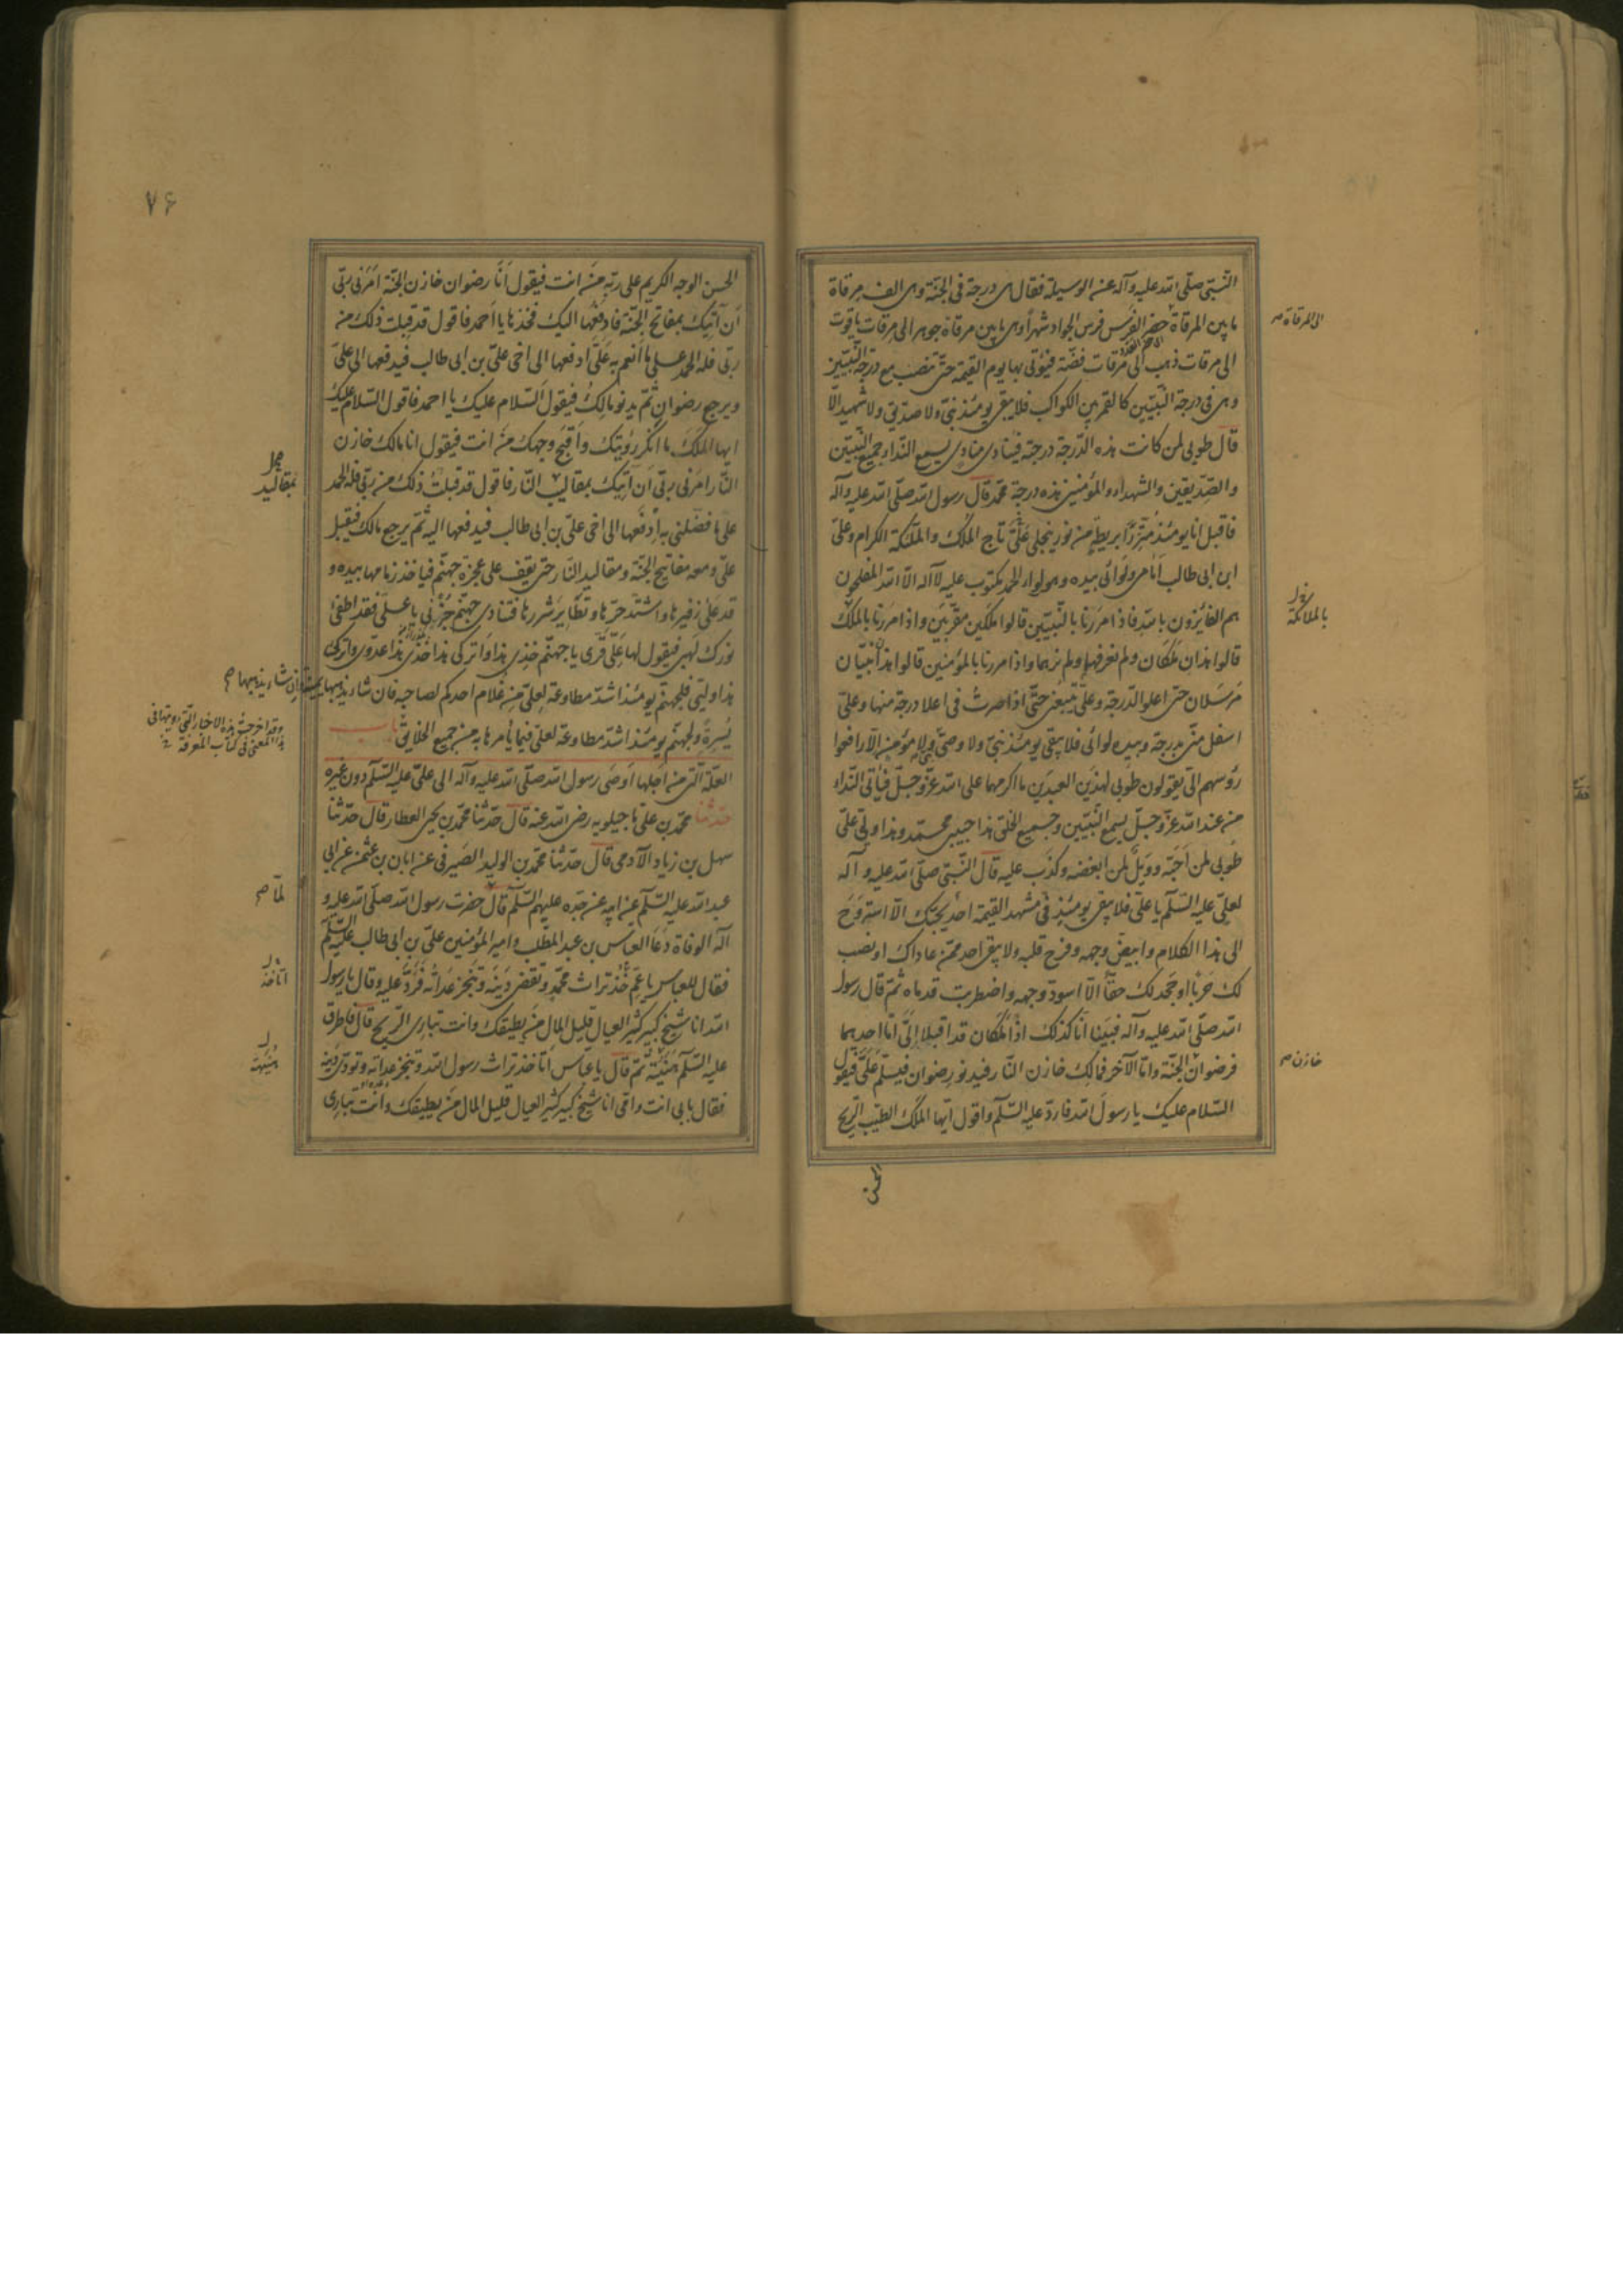 النّبيّ صلّى الله عليه وآله عن الوسيلة فقال هى درجة فى الجنّة وهى الف مرقاة
ما بين المرقاة حضر الفرس فرس الجواد شهراً وهى ما بين مرقاة جوهر الى مرقات ياقوت
الى المرقاة صح
الى مرقات ذهب الى مرقات فضّة فيؤتى بها يوم القيمة حتّى تنصب مع درجة النّبيّين
وهى فى درجة النّبيّين كالقمر بين الكواكب فلا يبقى يومئذ نبىّ ولا صدّيق ولا شهيد الّا
قال طوبى لمن كانت هذه الدّرجة درجته فينادى منادى يسمع النّداء جميع النّبيّين
والصّدّيقين والشهداء والمؤمنين هذه درجة محمّد قال رسول الله صلّى الله عليه وآله
فاقبل انا يومئذ متّزراً بريطة من نور ينجلى علىّ تاج الملك والملئكة الكرام وعلىّ
ابن ابى طالب امامى ولوائى بيده وهو لواء الحمد مكتوب عليه لا اله الّا الله المفلحون
هم الفايزون بالله فاذا مررنا بالنّبيّين قالوا ملكين مقرّبين واذا مررنا بالملك
بالملائكة
قالوا هذان ملكان ولم نعرفهما ولم نرهما واذا مررنا بالمؤمنين قالوا هذان نبيّان
مرسلان حتى اعلو الدّرجة وعلىّ يتبعنى حتّى اذا صرت فى اعلا درجة منها وعلىّ
اسفل منّى بدرجة وبيده لوائى فلا يبقى يومئذ نبىّ ولا وصىّ ولا مؤمن الّا رافعوا
رؤسهم الىّ يقولون طوبى لهذين العبدين ما اكرمهما على الله عزّ وجلّ فيأتى النّداء
من عند الله عزّ وجلّ يسمع النّبيّين وجميع الخلق هذا حبيبى محمّد وهذا وليّى علىّ
طوبى لمن احبّه وويل لمن ابغضه وكذب عليه قال النّبىّ صلّى الله عليه وآله
لعلىّ عليه السّلم يا علىّ فلا يبقى يومئذ فى مشهد القيمة احد يحبّك الّا استروح
الى هذا الكلام وابيضّ وجهه وفرح قلبه ولا يبقى احد ممّن عاداك او نصب
لك حرباً او جحد لك حقّاً الّا اسودّ وجهه واضطربت قدماه ثمّ قال رسول
الله صلّى الله عليه وآله فبينا انا كذلك اذا ملكان قد اقبلا الىّ امّا احدهما
فرضوان الجنّة وامّا الآخر فمالك خازن النّار فيدنو رضوان فيسلّم علىّ فيقول
خازن صح
السّلام عليك يا رسول الله فاردّ عليه السّلم واقول ايّها الملك الطيّب الرّيح
الحسن
٧۶
الحسن الوجه الكريم على ربّه من انت فيقول انا رضوان خازن الجنّة امرنى ربّى
ان آتيك بمفاتح الجنّة فادفعها اليك فخذها يا احمد فاقول قد قبلت ذلك من
ربّى فله الحمد على ما انعم به علىّ ادفعها الى اخى علىّ بن ابى طالب فيدفعها الى علىّ
ويرجع رضوان ثمّ يدنو مالك فيقول السّلام عليك يا احمد فاقول السّلام عليك
ايها الملك ما انكر رؤيتك واقبح وجهك من انت فيقول انا مالك خازن
النّار امرنى ربّى ان آتيك بمقاليب النّار فاقول قد قبلت ذلك من ربّى فله الحمد
بمقاليد
على ما فضّلنى به ادفعها الى اخى علىّ بن ابى طالب فيدفعها اليه ثمّ يرجع مالك فيقبل
علىّ ومعه مفاتيح الجنّة ومقاليد النّار حتى يقف على عجزة جهنّم فيأخذ زمامها بيده و
قد علىٰ زفيرها واشتدّ حرّها وتطاير شررها فتنادى جهنّم جزنى يا علىّ فقد اطفئ
نورك لهبى فيقول لها علىّ قرّى يا جهنّم خذى هذا واتركى هذا خذى هذا عدوّى واتركى
هذا وليّى فلجهنّم يومئذ اشدّ مطاوعة لعلىّ من غلام احدكم لصاحبه فان شاء يذهبها
يمنة وان شاء يذهبها صح
يسرة ولجهنّم يومئذ اشدّ مطاوعة لعلىّ فيما يأمرها به من جميع الخلايق باب
وقد اخرجت هذه الاخبار الّتى رويتها فى
هذا المعنى فى كتاب المعرفة
العلّة الّتى من اجلها اوصى رسول الله صلّى الله عليه وآله الى علىّ عليه السّلم دون غيره
حدّثنا محمّد بن علىّ ماجيلويه رضى الله عنه قال حدّثنا محمّد بن يحيى العطار قال حدّثنا
سهل بن زياد الآدمى قال حدّثنا محمّد بن الوليد الصيرفى عن ابان بن عثمن عن ابى
عبد الله عليه السّلم عن ابيه عن جدّه عليهم السّلم قال حضرت رسول الله صلّى الله عليه و
لمّا صح
آله الوفاة دعا العبّاس بن عبد المطّلب وامير المؤمنين علىّ بن ابى طالب عليه السّلم
فقال للعبّاس يا عمّ خذ تراث محمّد وتقضى دينه وتنجز عداته فردّ عليه وقال يا رسول
أتأخذ
الله انا شيخ كبير كثير العيال قليل المال من يطيقك وانت تبارى الرّيح قال فاطرق
عليه السّلم هنيئة ثمّ قال يا عبّاس أتأخذ تراث رسول الله وتنجز عداته وتؤدّى دينه
هنيهة
فقال بابى انت وامّى انا شيخ كبير كثير العيال قليل المال من يطيقك وانت تبارى